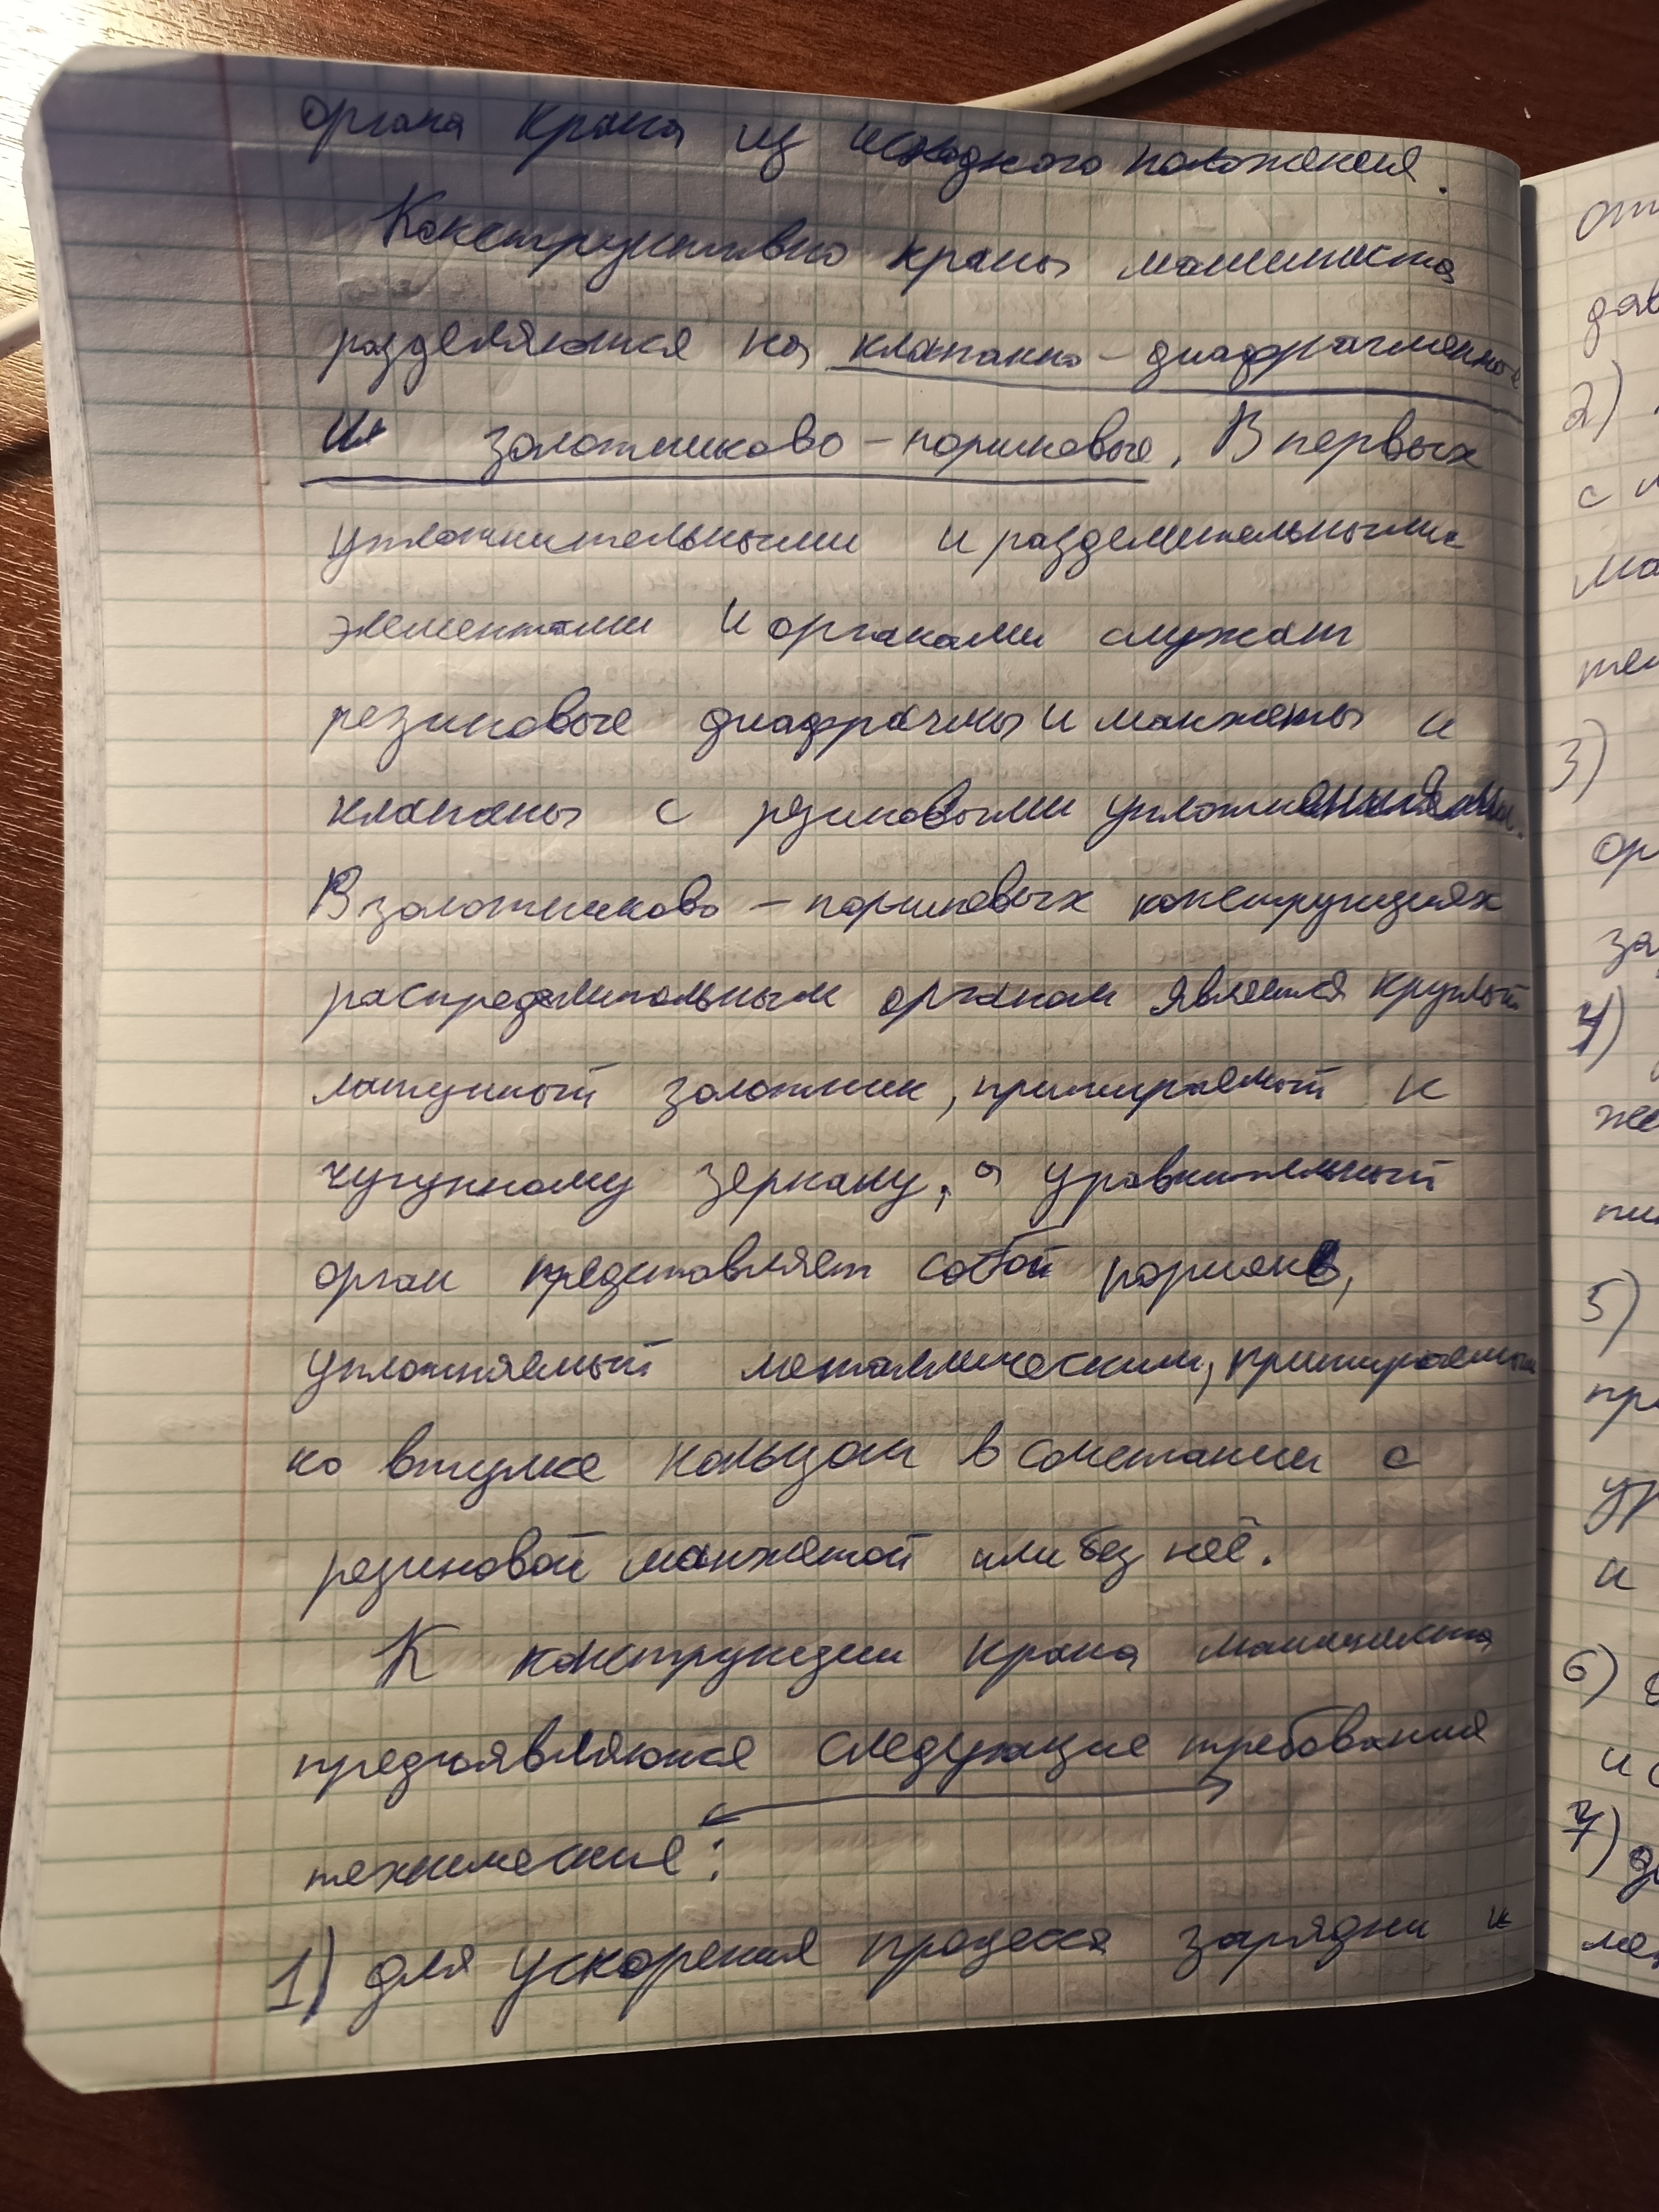 органа крана из исходного положения.
Конструктивно краны машиниста
разделяются на клапанно-диафрагменные
и золотниково-поршневые. В первых
уплотнительными и разделительными
элементами и органами служат
резиновые диафрагмы и манжеты и
клапаны с резиновыми уплотнениями.
В золотниково-поршневых конструкциях
распределительным органом является круглый
латунный золотник, притираемый к
чугунному зеркалу, а уравнительный
орган представляет собой поршень,
уплотняемый металлическим, притираемым
ко втулке кольцом в сочетании с
резиновой манжетой или без неё.
К конструкции крана машиниста
предъявляются следующие требования
технические:
1) для ускорения процесса зарядки и
от
дав
2)
с
ма
тел
3)
ор
за
4)
же
пи
5)
пр
ур
и
6)
и с
7)
ме